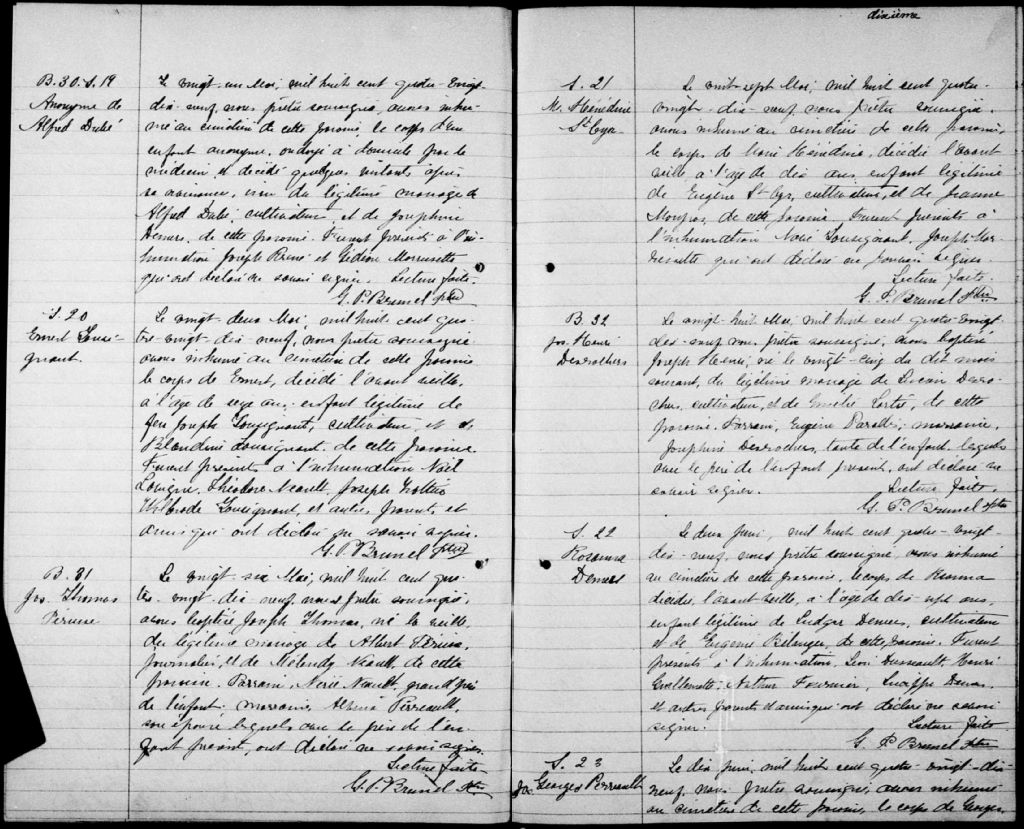 B. 30. S. 19
Anonyme de
Alfred Dubé
Le vingt-un Mai, mil huit cent quatre-vingt-
dix-neuf, nous prêtre soussigné, avons inhu-
mé au cimetière de cette paroisse, le corps d'un
enfant anonyme, ondoyé à domicile par le
médecin et décédé quelques instants après
sa naissance, issu du légitime mariage de
Alfred Dubé, cultivateur et de Joséphine
Demers, de cette paroisse. Furent présents à l'in-
humation Joseph et Gédéon Morissette
qui ont déclaré ne savoir signer. Lecture faite.
G. P. Brunel ptre
S. 20
Ernest Lousi-
gnant.
Le vingt-deux Mai, mil huit cent qua-
tre-vingt-dix-neuf, nous prêtre soussigné
avons inhumé au cimetière de cette paroisse
le corps de Ernest, décédé l'avant veille,
à l'âge de ans, enfant légitime de
feu Joseph Lousignant, cultivateur, et de
Blandine Lousignant, de cette paroisse.
Furent présents à l'inhumation Noël
Théodore Neault, Joseph
Lousignant, et autres parents et
amis qui ont déclaré ne savoir signer.
G. P. Brunel ptre
B. 31
Jos. Thomas
Perusse
Le vingt-six Mai, mil huit cent qua-
tre-vingt-dix-neuf nous prêtre soussigné,
avons baptisé Joseph Thomas, né la veille,
du légitime mariage de Albert Perusse,
journalier, et de Neault, de cette
paroisse. Parrain, Neault, grand père
de l'enfant; marraine, Perreault,
son épouse lesquels avec le père de l'en-
fant présent, ont déclaré ne savoir signer.
Lecture faite
G. P. Brunel Ptre
dixième
S. 21
M. Hénédine
St Cyr
Le vingt-sept Mai, mil huit cent quatre-
vingt-dix-neuf nous Prêtre soussigné
avons inhumé au cimetière de cette paroisse,
le corps de Marie Hénédine, décédée l'avant
veille à l'âge de dix ans, enfant légitime
de Eugène St Cyr, cultivateur, et de Jeanne
de cette paroisse. Furent présents à
l'inhumation Lousignant, Joseph Mor-
issette qui ont déclaré ne pouvoir signer.
Lecture faite.
G. P. Brunel Ptre
B. 32
Jos Henri
Desrochers
Le vingt-huit Mai, mil huit cent quatre-vingt
dix-neuf nous prêtre soussigné, avons baptisé
Joseph Henri, né le vingt-cinq du dit mois
courant, du légitime mariage de Desro-
chers, cultivateur, et de de cette
paroisse. Parrain, Eugène Paradis; marraine,
Joséphine Desrochers, tante de l'enfant, lesquels
avec le père de l'enfant présent, ont déclaré ne
savoir signer. Lecture faite
G. P. Brunel ptre
S. 22
Rosanna
Demers
Le deux Juin, mil huit cent quatre-vingt-
dix-neuf, nous prêtre soussigné, avons inhumé
au cimetière de cette paroisse, le corps de
décédée l'avant veille, à l'âge de dix-sept ans,
enfant légitime de Ludger Demers, cultivateur
et de Eugénie Bélanger, de cette paroisse. Furent
présents à l'inhumation, Dussault, Henri
Arthur Fournier, Demers,
et autres parents et amis qui ont déclaré ne savoir
signer. Lecture faite
G. P. Brunel Ptre
S. 23
Jos. Georges Perreault
Le dix Juin, mil huit cent quatre-vingt-dix-
neuf, nous prêtre soussigné, avons inhumé
au cimetière de cette paroisse, le corps de Georges